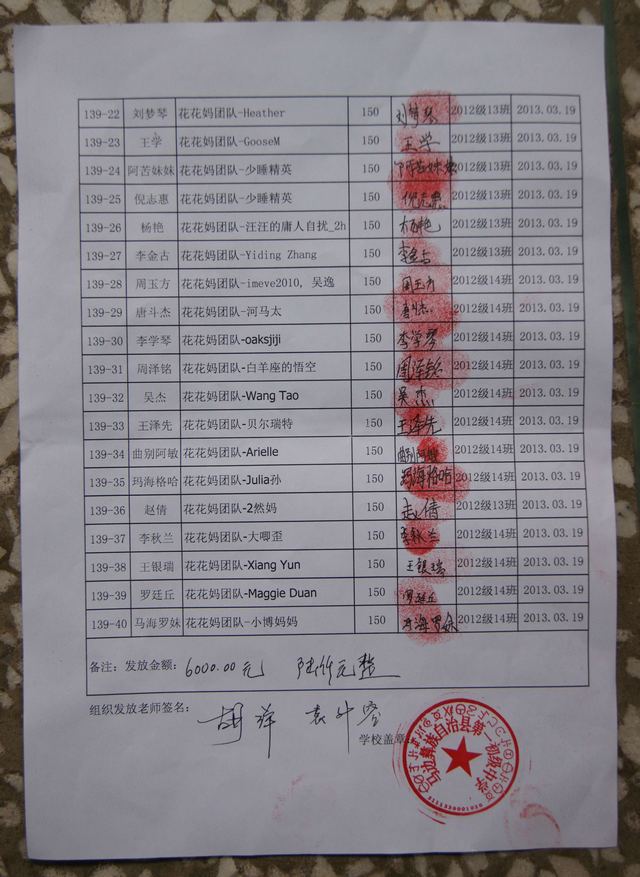 139-22 刘梦琴 花花妈团队-Heather 150 刘梦琴 2012级13班 2013.03.19
139-23 王学 花花妈团队-GooseM 150 王学 2012级13班 2013.03.19
139-24 阿苦妹妹 花花妈团队-少睡精英 150 阿苦妹妹 2012级13班 2013.03.19
139-25 倪志惠 花花妈团队-少睡精英 150 倪志惠 2012级13班 2013.03.19
139-26 杨艳 花花妈团队-汪汪的庸人自扰_2h 150 杨艳 2012级13班 2013.03.19
139-27 李金古 花花妈团队-Yiding Zhang 150 李金古 2012级13班 2013.03.19
139-28 周玉方 花花妈团队-imeve2010, 吴逸 150 周玉方 2012级14班 2013.03.19
139-29 唐斗杰 花花妈团队-河马太 150 唐斗杰 2012级14班 2013.03.19
139-30 李学琴 花花妈团队-oaksjiji 150 李学琴 2012级14班 2013.03.19
139-31 周泽铭 花花妈团队-白羊座的悟空 150 周泽铭 2012级14班 2013.03.19
139-32 吴杰 花花妈团队-Wang Tao 150 吴杰 2012级14班 2013.03.19
139-33 王泽先 花花妈团队-贝尔瑞特 150 王泽先 2012级14班 2013.03.19
139-34 曲别阿敏 花花妈团队-Arielle 150 曲别阿敏 2012级14班 2013.03.19
139-35 玛海格哈 花花妈团队-Julia孙 150 玛海格哈 2012级14班 2013.03.19
139-36 赵倩 花花妈团队-2然妈 150 赵倩 2012级13班 2013.03.19
139-37 李秋兰 花花妈团队-大唧歪 150 李秋兰 2012级14班 2013.03.19
139-38 王银瑞 花花妈团队-Xiang Yun 150 王银瑞 2012级14班 2013.03.19
139-39 罗廷丘 花花妈团队-Maggie Duan 150 罗廷丘 2012级14班 2013.03.19
139-40 马海罗妹 花花妈团队-小博妈妈 150 马海罗妹 2012级14班 2013.03.19
备注: 发放金额: 6000.00元 陆仟元整
组织发放老师签名: 胡萍
学校盖章:
马边彝族自治县第一初级中学